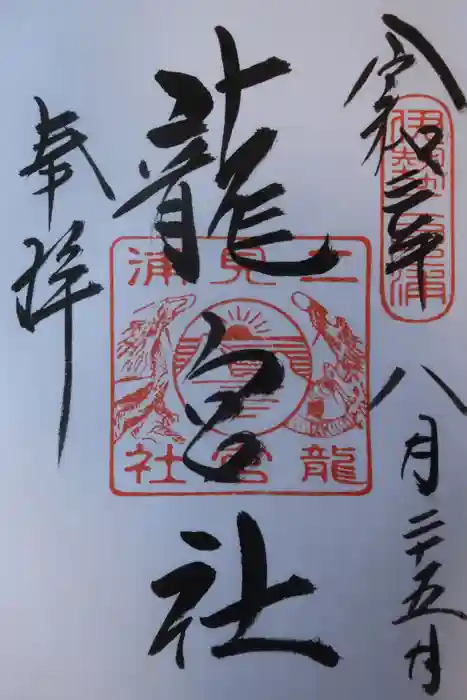 令和三年八月二十五日
伊勢二見浦
龍宮社
二見浦
龍宮社
奉拝